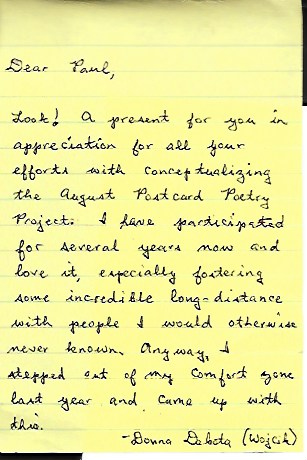 Dear Paul,
Look! A present for you in
appreciation for all your
efforts with conceptualizing
the August Postcard Poetry
Project. I have participated
for several years now and
love it, especially fostering
some incredible long-distance
with people I would otherwise
never known. Anyway, I
stepped out of my comfort zone
last year and came up with
this.
-Donna (Wojcik)